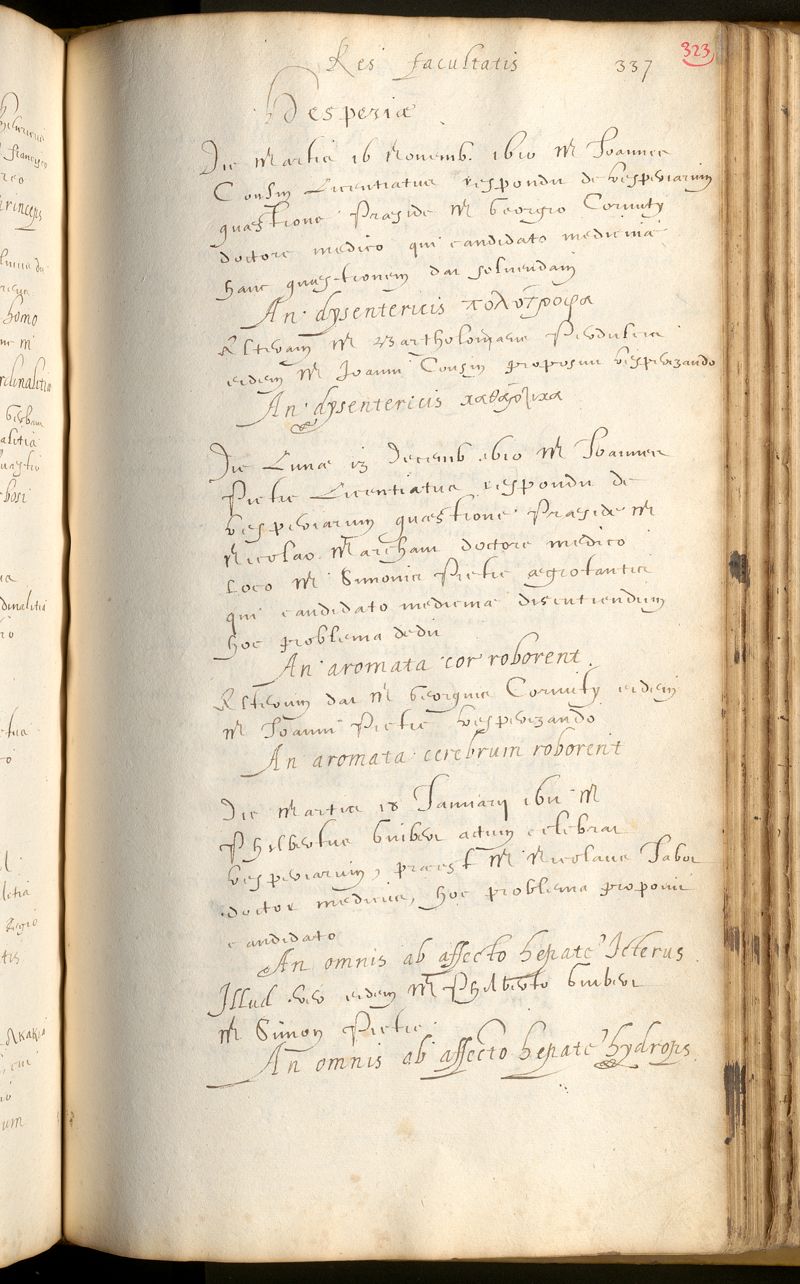 Res facultatis 337 323
Vesperiæ
Die Martis 16 Novemb. 1610 M Joannes
Cousin Licentiatus respondit de vesperiarum
quæstione Præside M Georgio Cornuty
doctore medico qui candidato medicinæ
hanc quæstionem dat solvendam
An dysentericis πολύτροφα
Alteram M Bartholomæus Perdulcis
eidem M Joanni Cousin proposuit vesperizando
An dysentericis καθαρτικα
Die Lunæ 13 Decemb 1610 M Joannes
Pietre Licentiatus respondit de
vesperiarum quæstione Præside M
Nicolao Marchant doctore medico
loco M Simonis Pietre ægrotantis
qui candidato medicinæ discutiendum
hoc problema dedit
An aromata cor roborent.
Alterum dat M Georgius Cornuty eidem
M Joanni Pietre vesperizando
An aromata cerebrum roborent
Die Martis 18 Januarij 1611 M
Philbertus Guibert actum celebrat
vesperiarum, præest M Nicolaus Jabot
doctor medicus, hoc problema proponit
candidato
An omnis ab affecto hepate Icterus.
Illud vero eidem M Philberto Guibert
M Simon Pietre.
An omnis ab affecto hepate hydrops.